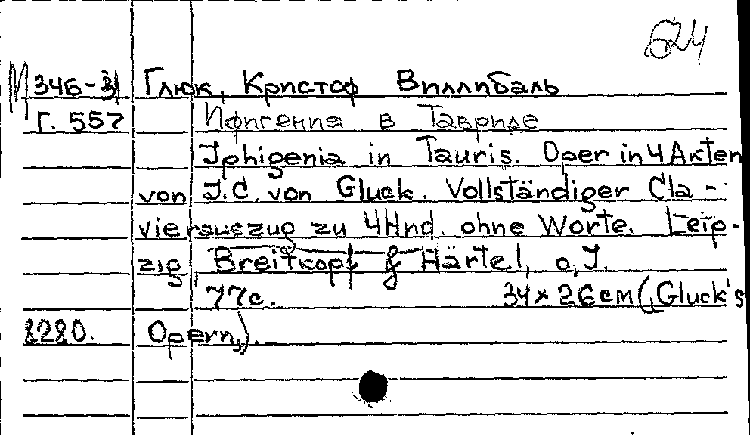 624
М 346-31 Глюк, Кристоф Виллибаль
Г. 557 Ифигения в Тавриде
Iphigenia in Tauris. Oper in 4 Akten
von J.C. von Gluck. Vollständiger Cla-
vierauszug zu 4 Hnd. ohne Worte. Leip-
zig, Breitkopf & Härtel, o.J.
77c. 34 x 26 см (Gluck's
8280. Opern,).